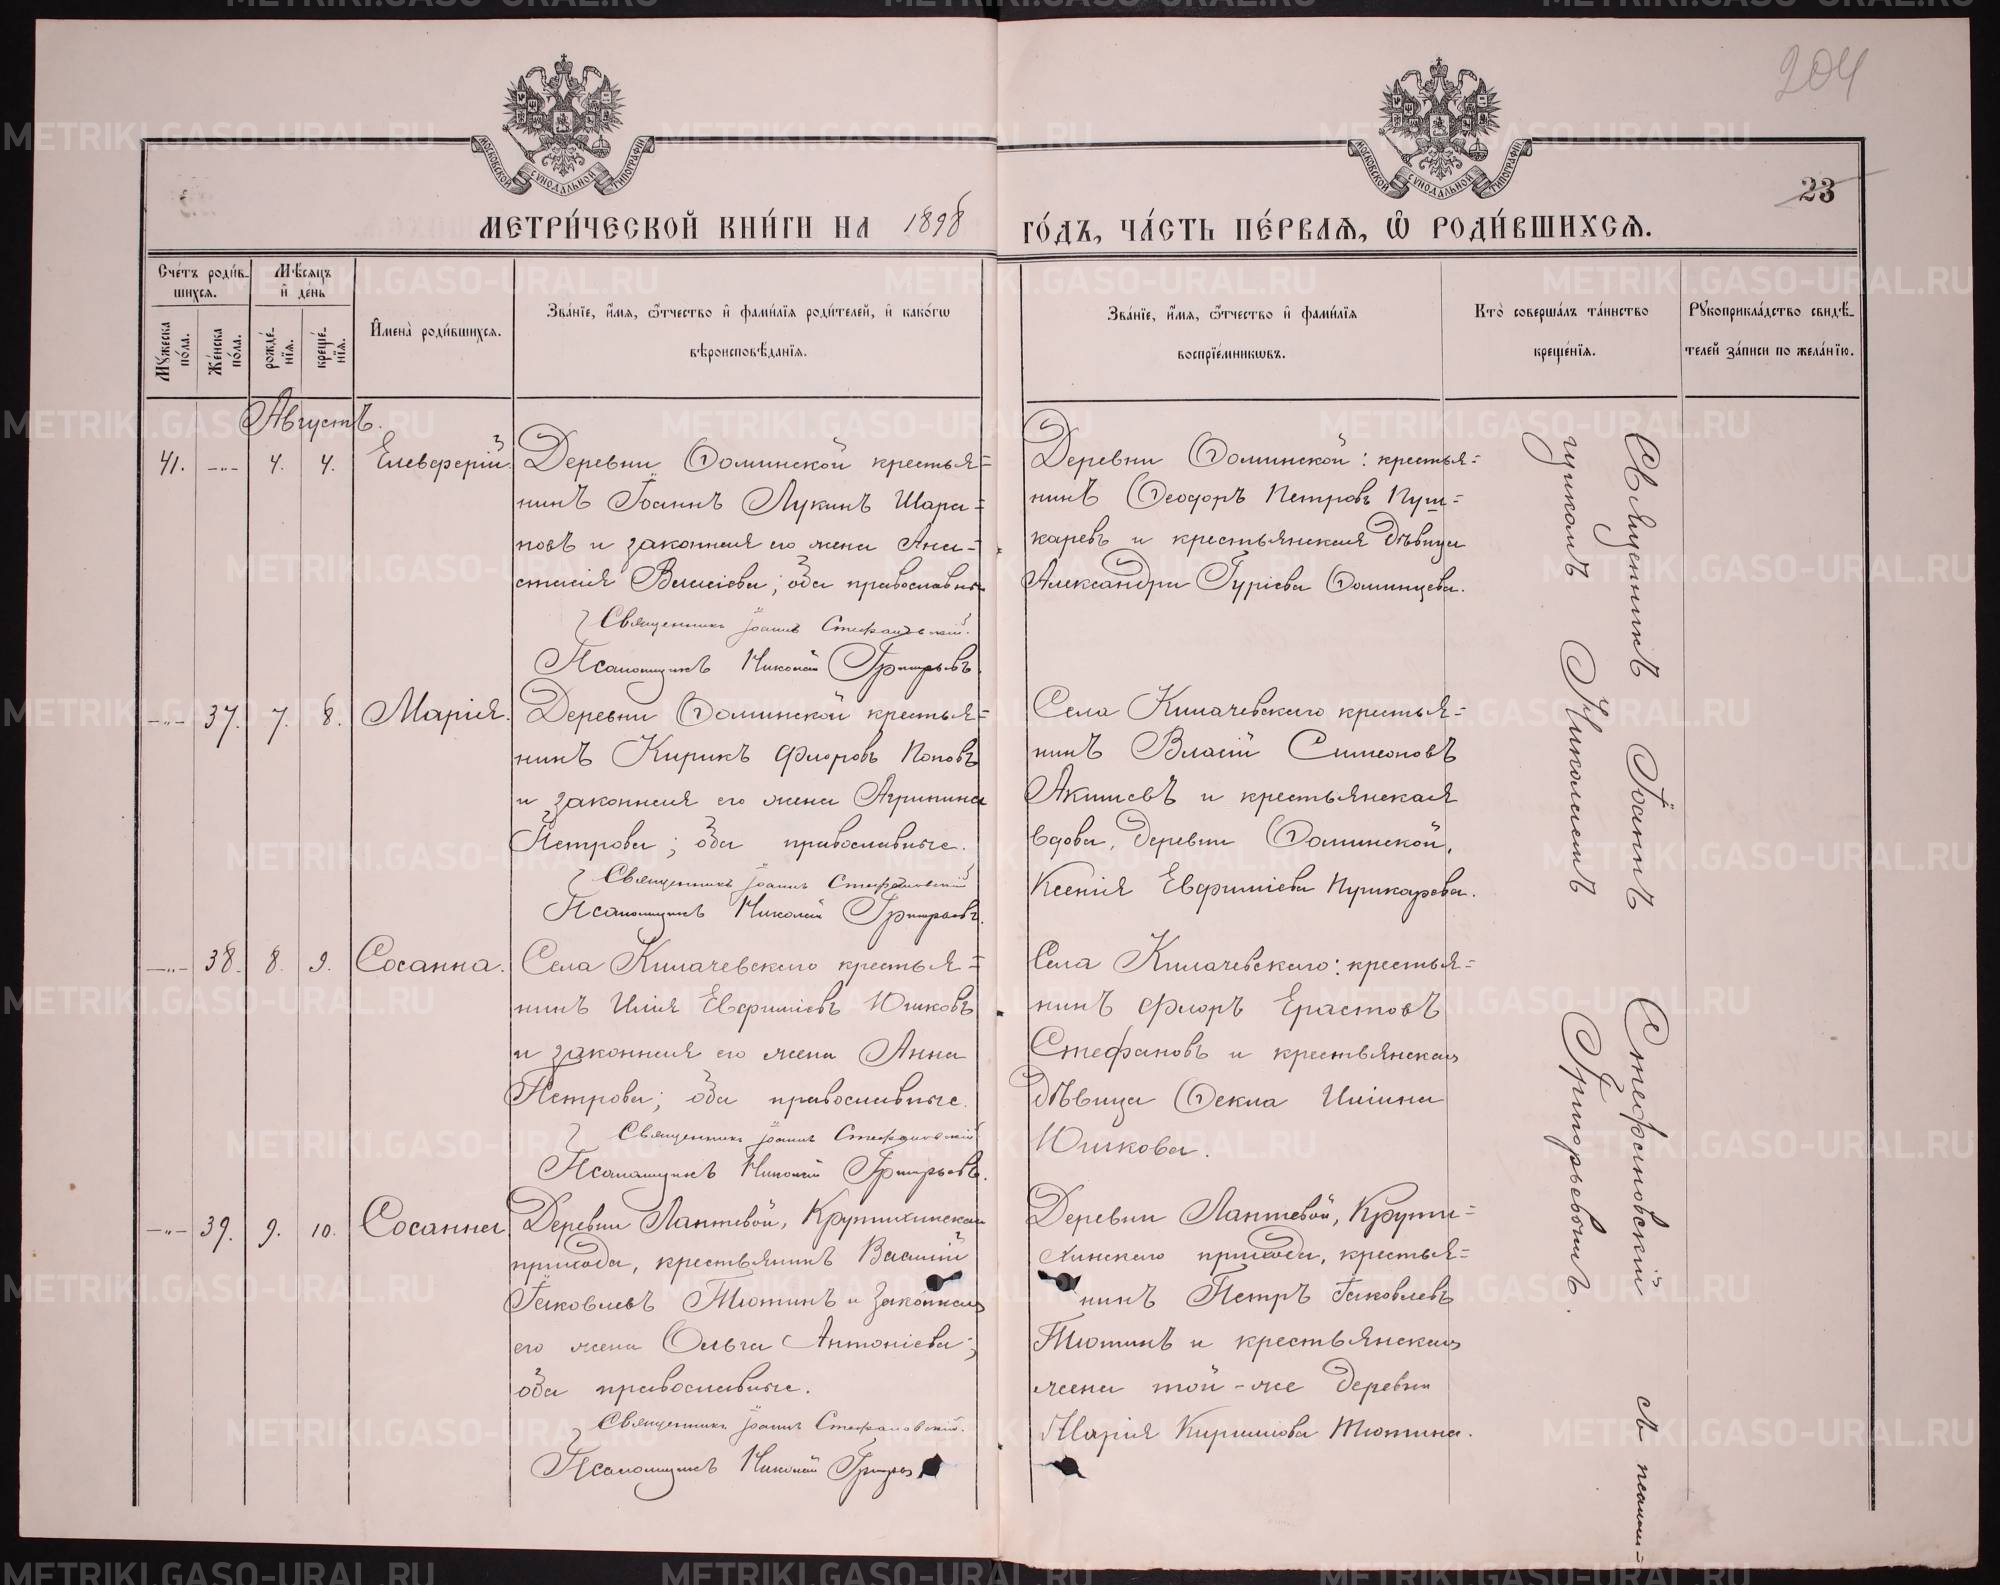 204
23
МОСКОВСКОЙ СѴНОДАЛЬНОЙ ТИПОГРАФІИ
МОСКОВСКОЙ СѴНОДАЛЬНОЙ ТИПОГРАФІИ
МЕТРИ́ЧЕСКОЙ КНИ́ГИ НА 1898 ГО́ДЪ, ЧА́СТЬ ПЕ́РВАѦ, Ѽ РОДИ́ВШИХСѦ.
Сче́тъ роди́в-
шихсѧ.
Мѣ́сѧцъ
и҆ де́нь
Мꙋ́жеска по́ла.
Же́нска по́ла.
рожде́-
нїѧ.
креще́-
нїѧ.
И҆мена̀ роди́вшихсѧ.
Зва́нїе, и҆́мѧ, ѻ҆́тчество и҆ фами́лїѧ роди́телей, и҆ како́гѡ
вѣроисповѣ́данїѧ.
Зва́нїе, и҆́мѧ, ѻ҆́тчество и҆ фами́лїѧ
воспрїе́мникѡвъ.
Кто̀ соверша́лъ та́инство
креще́нїѧ.
Рꙋкоприкла́дство свидѣ́-
телей за́писи по жела́нїю.
Августъ.
41. -"- 4. 4. Елевферій.
Деревни Ѳоминской крестья=
нинъ Іоаннъ Лукинъ Шара=
повъ и законная его жена Ана=
стасія Власіева; оба православные
Священникъ Іоаннъ Стефановскій.
Псаломщикъ Николай Григорьевъ.
Деревни Ѳоминской: крестья=
нинъ Ѳеодоръ Петровъ Пуш=
каревъ и крестьянская дѣвица
Александра Гуріева Ѳоминцева.
-"- 37. 7. 8. Марія.
Деревни Ѳоминской крестья=
нинъ Кирикъ Флоровъ Поповъ
и законная его жена Агрипина
Петрова; оба православные.
Священникъ Іоаннъ Стефановскій
Псаломщикъ Николай Григорьевъ.
Села Килачевскаго крестья=
нинъ Власій Симеоновъ
Акишевъ и крестьянская
вдова, деревни Ѳоминской,
Ксенія Евфиміева Пушкарева.
-"- 38. 8. 9. Сосанна.
Села Килачевскаго крестья=
нинъ Илія Евфиміевъ Юшковъ
и законная его жена Анна
Петрова; оба православные.
Священникъ Іоаннъ Стефановскій
Псаломщикъ Николай Григорьевъ.
Села Килачевскаго: крестья=
нинъ Флоръ Ерастовъ
Стефановъ и крестьянская
дѣвица Ѳекла Иліина
Юшкова.
-"- 39. 9. 10. Сосанна
Деревни Лаптевой, Крутихинскаго
прихода, крестьянинъ Василій
Іаковлевъ Тютинъ и законная
его жена Ольга Антоніева;
оба православные.
Священникъ Іоаннъ Стефановскій.
Псаломщикъ Николай
Деревни Лаптевой, Крути=
хинскаго прихода, крестья=
нинъ Петръ Іаковлевъ
Тютинъ и крестьянская
жена той-же деревни
Марія Кириллова Тютина.
Священникъ Іоаннъ Стефановскій съ псалом=
щикомъ Николаемъ Григорьевымъ.
METRIKI.GASO-URAL.RU